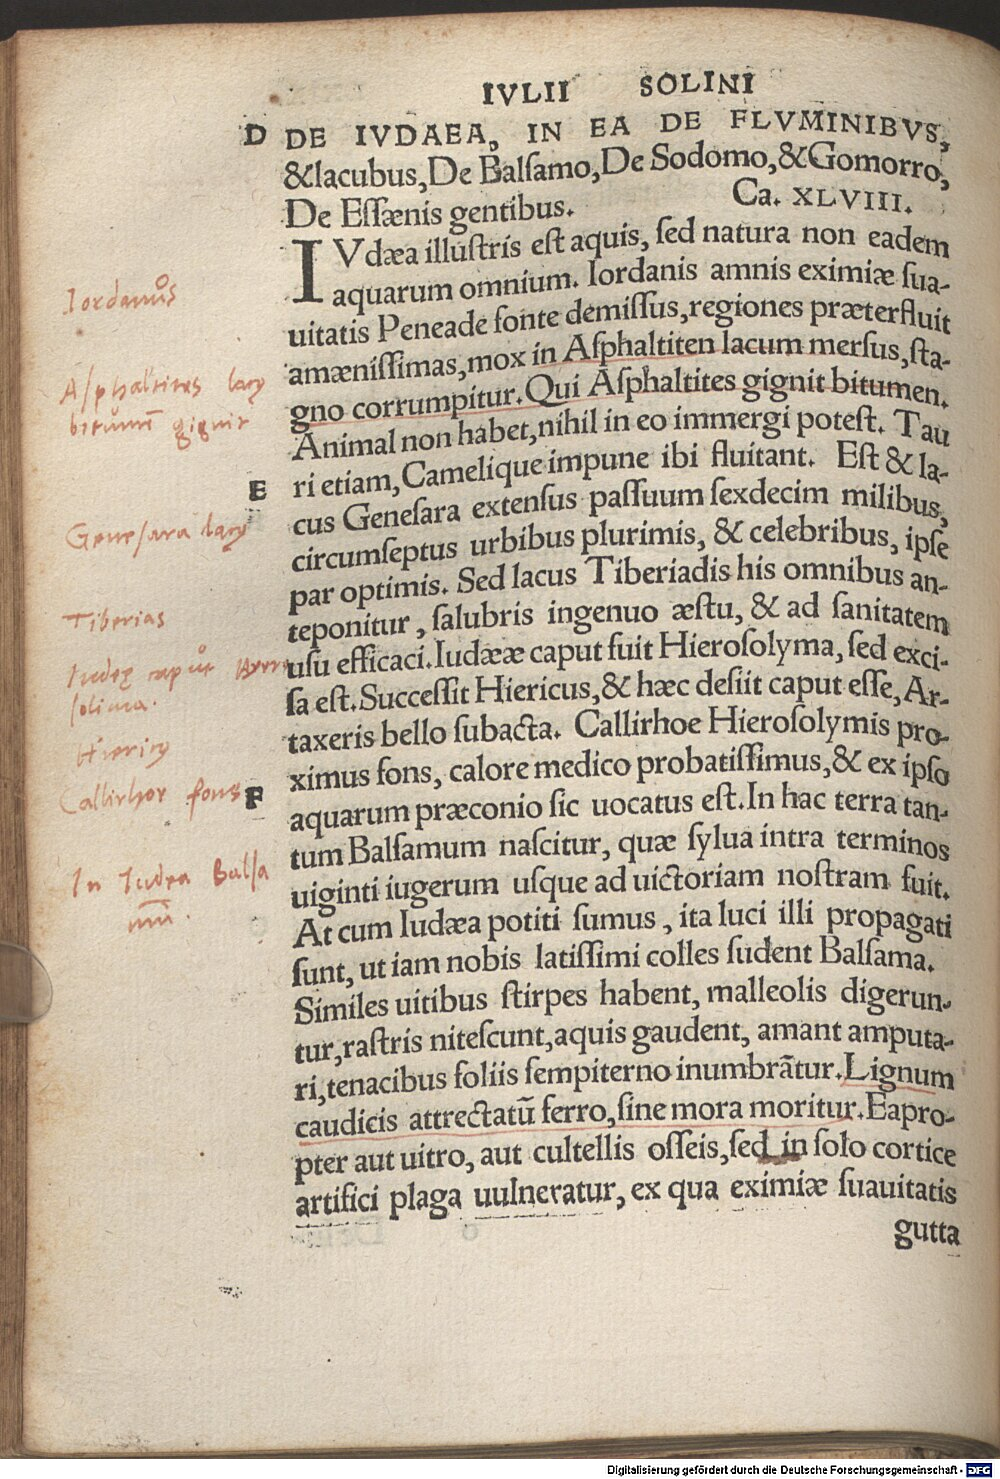 IVLII SOLINI
D DE IVDAEA, IN EA DE FLVMINIBVS,
&lacubus, De Balſamo, De Sodomo, &Gomorro,
De Eſſænis gentibus. Ca. XLVIII.
IVdæa illuſtris eſt aquis, ſed natura non eadem
aquarum omnium. Iordanis amnis eximiæ ſua-
Iordanus
uitatis Peneade fonte demiſſus, regiones præterfluit
amæniſſimas, mox in Aſphaltiten lacum merſus, ſta-
Aſphaltites lacꝰ
gno corrumpitur. Qui Aſphaltites gignit bitumen.
bitumē gignit
Animal non habet, nihil in eo immergi poteſt. Tau
E
ri etiam, Camelique impune ibi fluitant. Eſt & la-
cus Geneſara extenſus paſſuum ſexdecim milibus,
Geneſara lacꝰ
circumſeptus urbibus plurimis, & celebribus, ipſe
par optimis. Sed lacus Tiberiadis his omnibus an-
teponitur, ſalubris ingenuo æſtu, & ad ſanitatem
Tiberias
uſu efficaci. Iudææ caput fuit Hieroſolyma, ſed exci-
Iudeę caput
ſolima.
ſa eſt. Succeſſit Hiericus, & hæc deſiit caput eſſe, Ar-
taxeris bello ſubacta. Callirhoe Hieroſolymis pro-
Hiericꝰ
ximus fons, calore medico probatiſſimus, & ex ipſo
Callirhoe fons F
aquarum præconio ſic uocatus eſt. In hac terra tan-
tum Balſamum naſcitur, quæ ſylua intra terminos
In Iudęa Balſa
mū.
uiginti iugerum uſque ad uictoriam noſtram fuit.
At cum Iudæa potiti ſumus, ita luci illi propagati
ſunt, ut iam nobis latiſſimi colles ſudent Balſama.
Similes uitibus ſtirpes habent, malleolis digerun-
tur, raſtris niteſcunt, aquis gaudent, amant amputa-
ri, tenacibus foliis ſempiterno inumbrātur. Lignum
caudicis attrectatū ferro, ſine mora moritur. Eapro-
pter aut uitro, aut cultellis oſſeis, ſed in ſolo cortice
artifici plaga uulneratur, ex qua eximiæ ſuauitatis
gutta
Digitalisierung gefördert durch die Deutsche Forschungsgemeinschaft - DFG